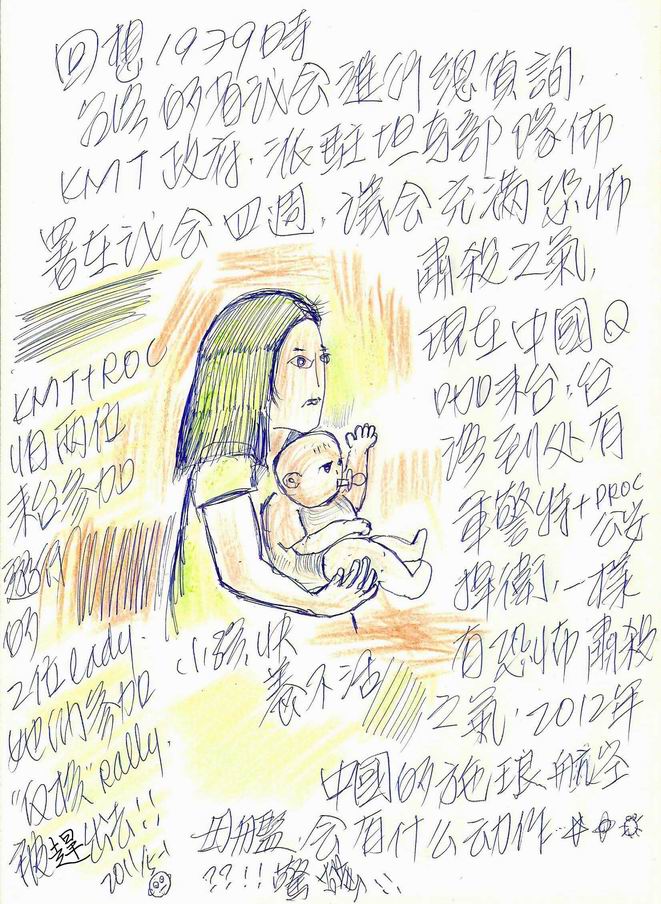 回想1979時
的省议会進行總偵詢,
KMT政府,派駐坦 部隊佈
署在议会四週,議会充滿恐怖
肅殺之氣,
現在中國Q
咖來台,台
灣到处有
軍警特+PROC
公安
捍衛,一樣
有恐怖肅殺
之氣,2012年
中國的施琅航空
母艦,会有什么动作
??!!驚 !!
KMT+ROC
怕兩位
來台參加
的
2位lady.
她們參加
"反核"Rally.
被趕出去!!
2011/5-1
小孩,快
養不活